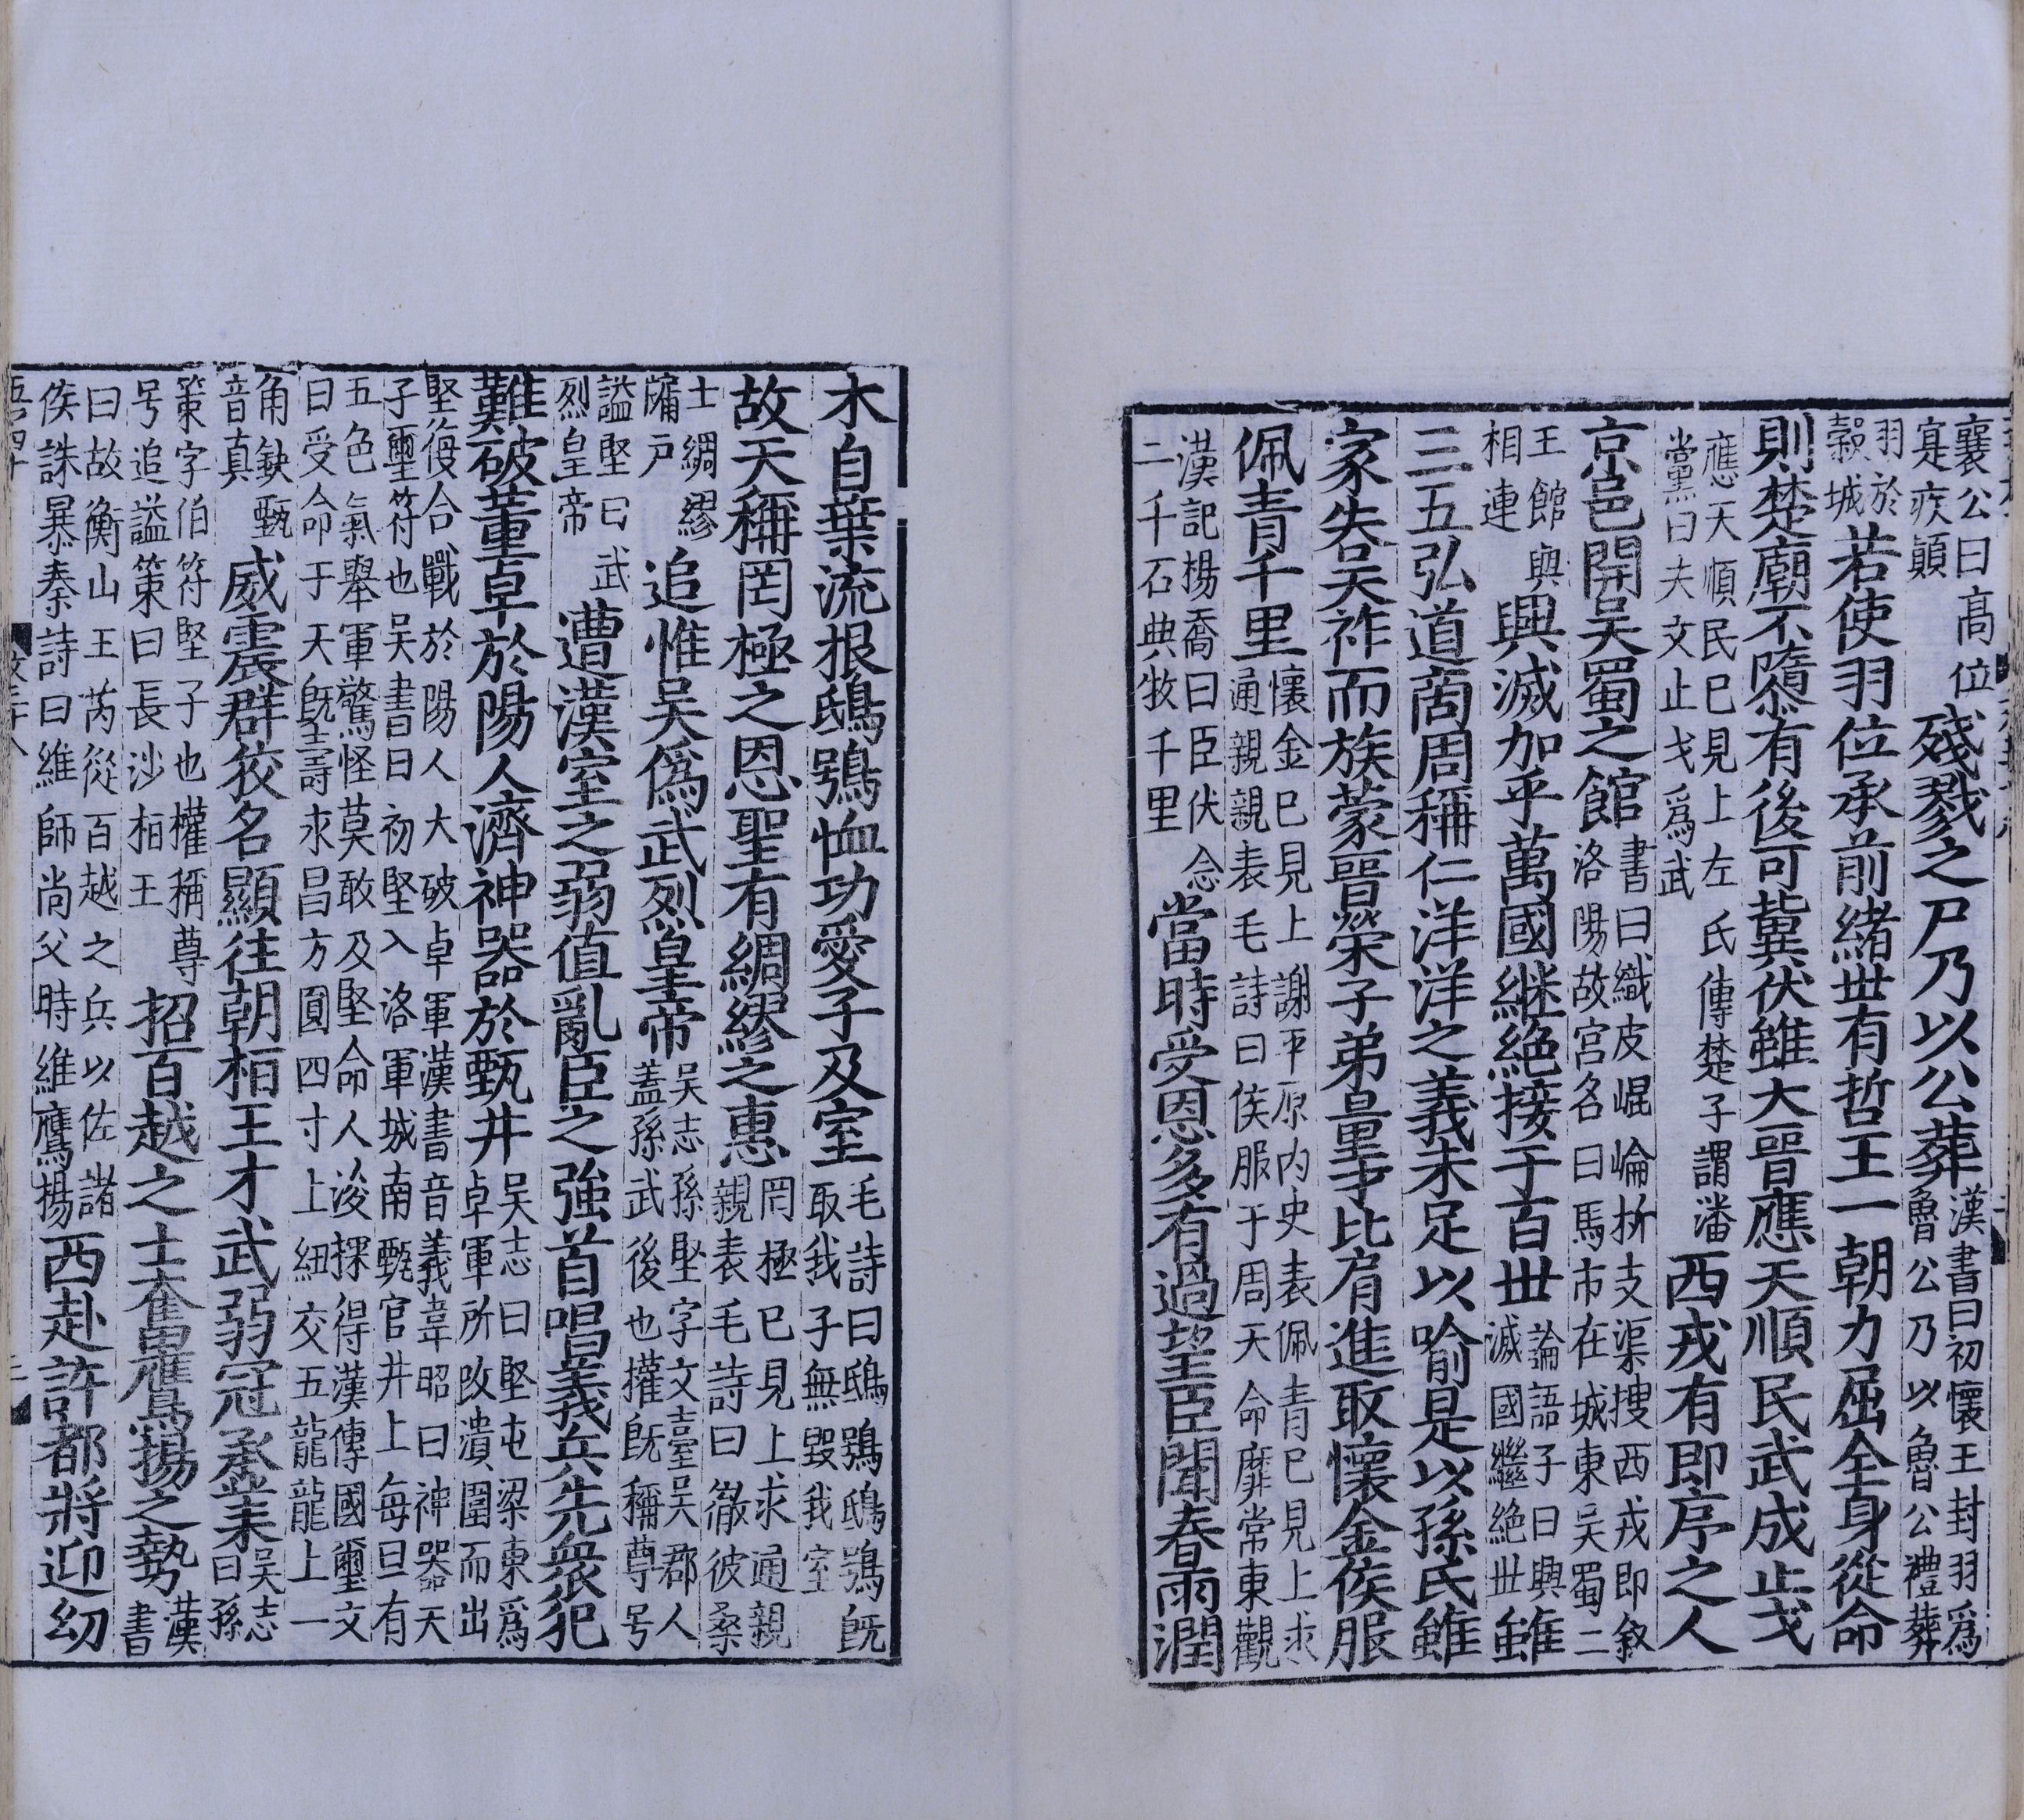 襄公曰高位寔疾顛殘戮之尸乃以公葬漢書曰初懷王封羽爲魯公乃以魯公禮葬
羽於榖城若使羽位承前緒世有哲王一朝力屈全身從命
則楚廟不隳有後可冀伏雖大晉應天順民武成止戈
應天順民已見上左氏傳楚子謂潘黨曰夫文止戈爲武西戎有即序之人
京邑開吳蜀之館書曰織皮崐崘析支渠搜西戎即敘洛陽故宮名曰馬市在城東吳蜀二
王館與相連興滅加乎萬國継絕接于百世論語子曰興滅國繼絕世雖
三五弘道商周稱仁洋洋之義未足以喻是以孫氏雖
家失吳祚而族蒙晉榮子弟量才比肩進取懷金侯服
佩青千里懷金已見上謝平原內史表佩青已見上求通親親表毛詩曰侯服于周天命靡常東觀
漢記楊喬曰臣伏念二千石典牧千里當時受恩多有過望臣聞春雨潤
木自葉流根鴟鴞恤功愛子及室毛詩曰鴟鴞鴟鴞既取我子無毀我室
故天稱罔極之恩聖有綢繆之惠罔極已見上求通親親表毛詩曰徹彼桑
士綢繆牖戶追惟吳僞武烈皇帝吳志孫堅字文臺吳郡人蓋孫武後也權既稱尊号
謚堅曰武烈皇帝遭漢室之弱值亂臣之強首唱義兵先衆犯
難破董卓於陽人濟神器於甄井吳志曰堅屯梁東爲卓軍所攻潰圍而出
堅復合戰於陽人大破卓軍漢書音義韋昭曰神器天子璽符也吳書曰初堅入洛軍城南甄官井上每旦有
五色氣舉軍驚怪莫敢及堅命人浚探得漢傳國璽文曰受命于天既壽永昌方圓四寸上紐交五龍龍上一
角缺甄音真威震群狡名顯往朝桓王才武弱冠承業吳志曰孫
策字伯符堅子也權稱尊号追謚策曰長沙桓王招百越之士奮鷹揚之勢漢書
曰故衡山王芮從百越之兵以佐諸侯誅暴秦詩曰維師尚父時維鷹揚西赴許都將迎幼